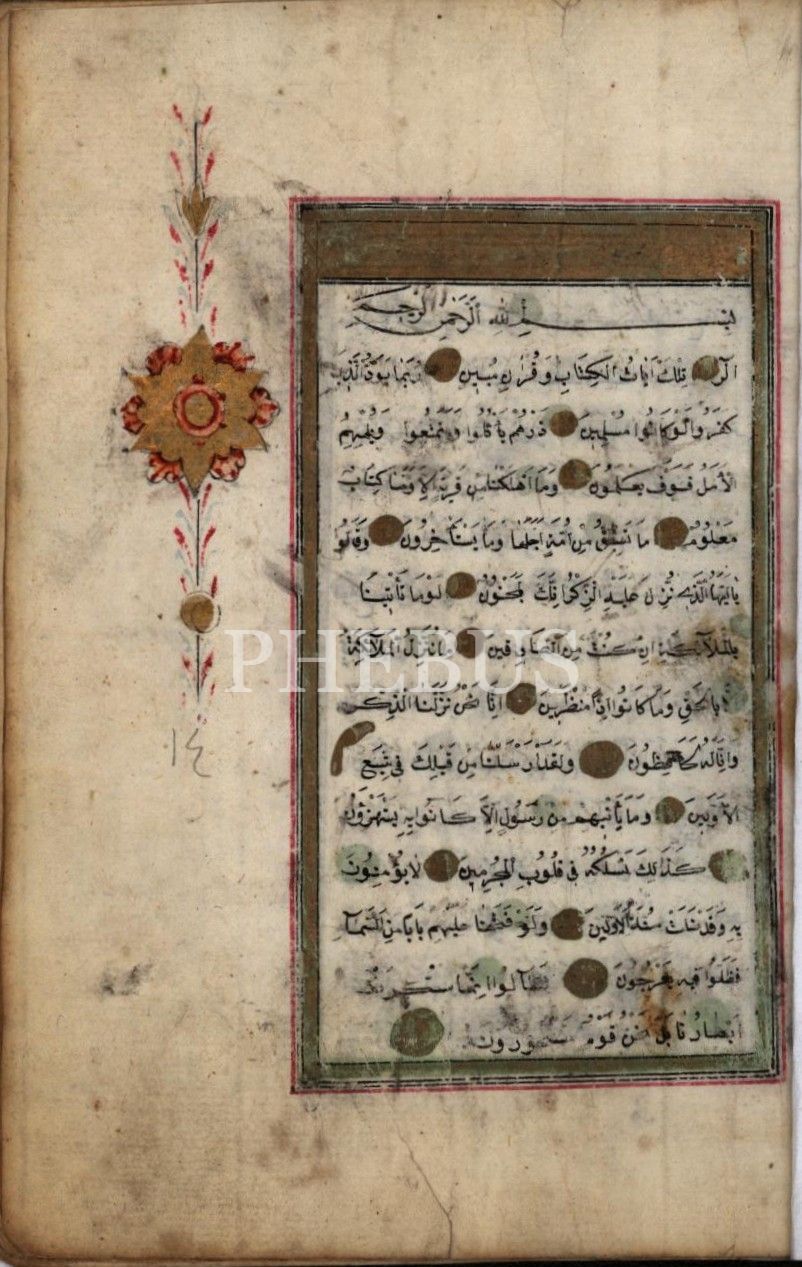 بسم الله الرحمن الرحيم
الر تلك ايات الكتاب وقران مبين ربما يود الذين
كفروا لو كانوا مسلمين ذرهم يأكلوا ويتمتعوا ويلههم
الامل فسوف يعلمون وما اهلكنا من قرية الا ولها كتاب
معلوم ما تسبق من امة اجلها وما يستأخرون وقالوا
يا ايها الذي نزل عليه الذكر انك لمجنون لوما تأتينا
بالملائكة ان كنت من الصادقين ما ننزل الملائكة
الا بالحق وما كانوا اذا منظرين انا نحن نزلنا الذكر
وانا له لحافظون ولقد ارسلنا من قبلك في شيع
الاولين وما يأتيهم من رسول الا كانوا به يستهزؤن
كذلك نسلكه في قلوب المجرمين لا يؤمنون
به وقد خلت سنة الاولين ولو فتحنا عليهم بابا من السماء
فظلوا فيه يعرجون لقالوا انما سكرت
ابصارنا بل نحن قوم مسحورون
١٤
PHEBUS